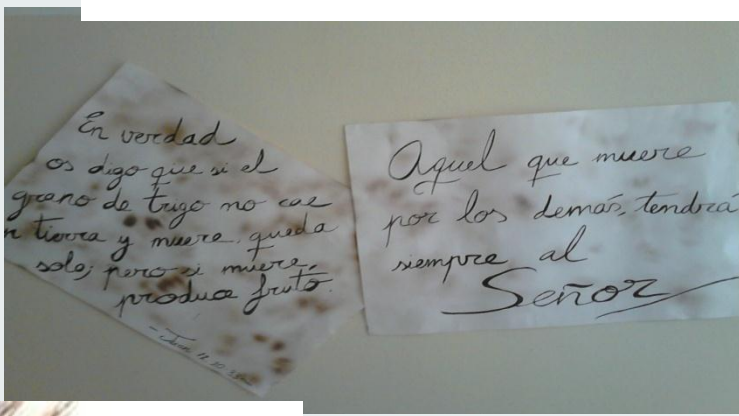 En verdad
os digo que si el
grano de trigo no cae
n tierra y muere, queda
solo; pero si muere,
produce fruto.
Aquel que muere
por los demás, tendrá
siempre al
Señor